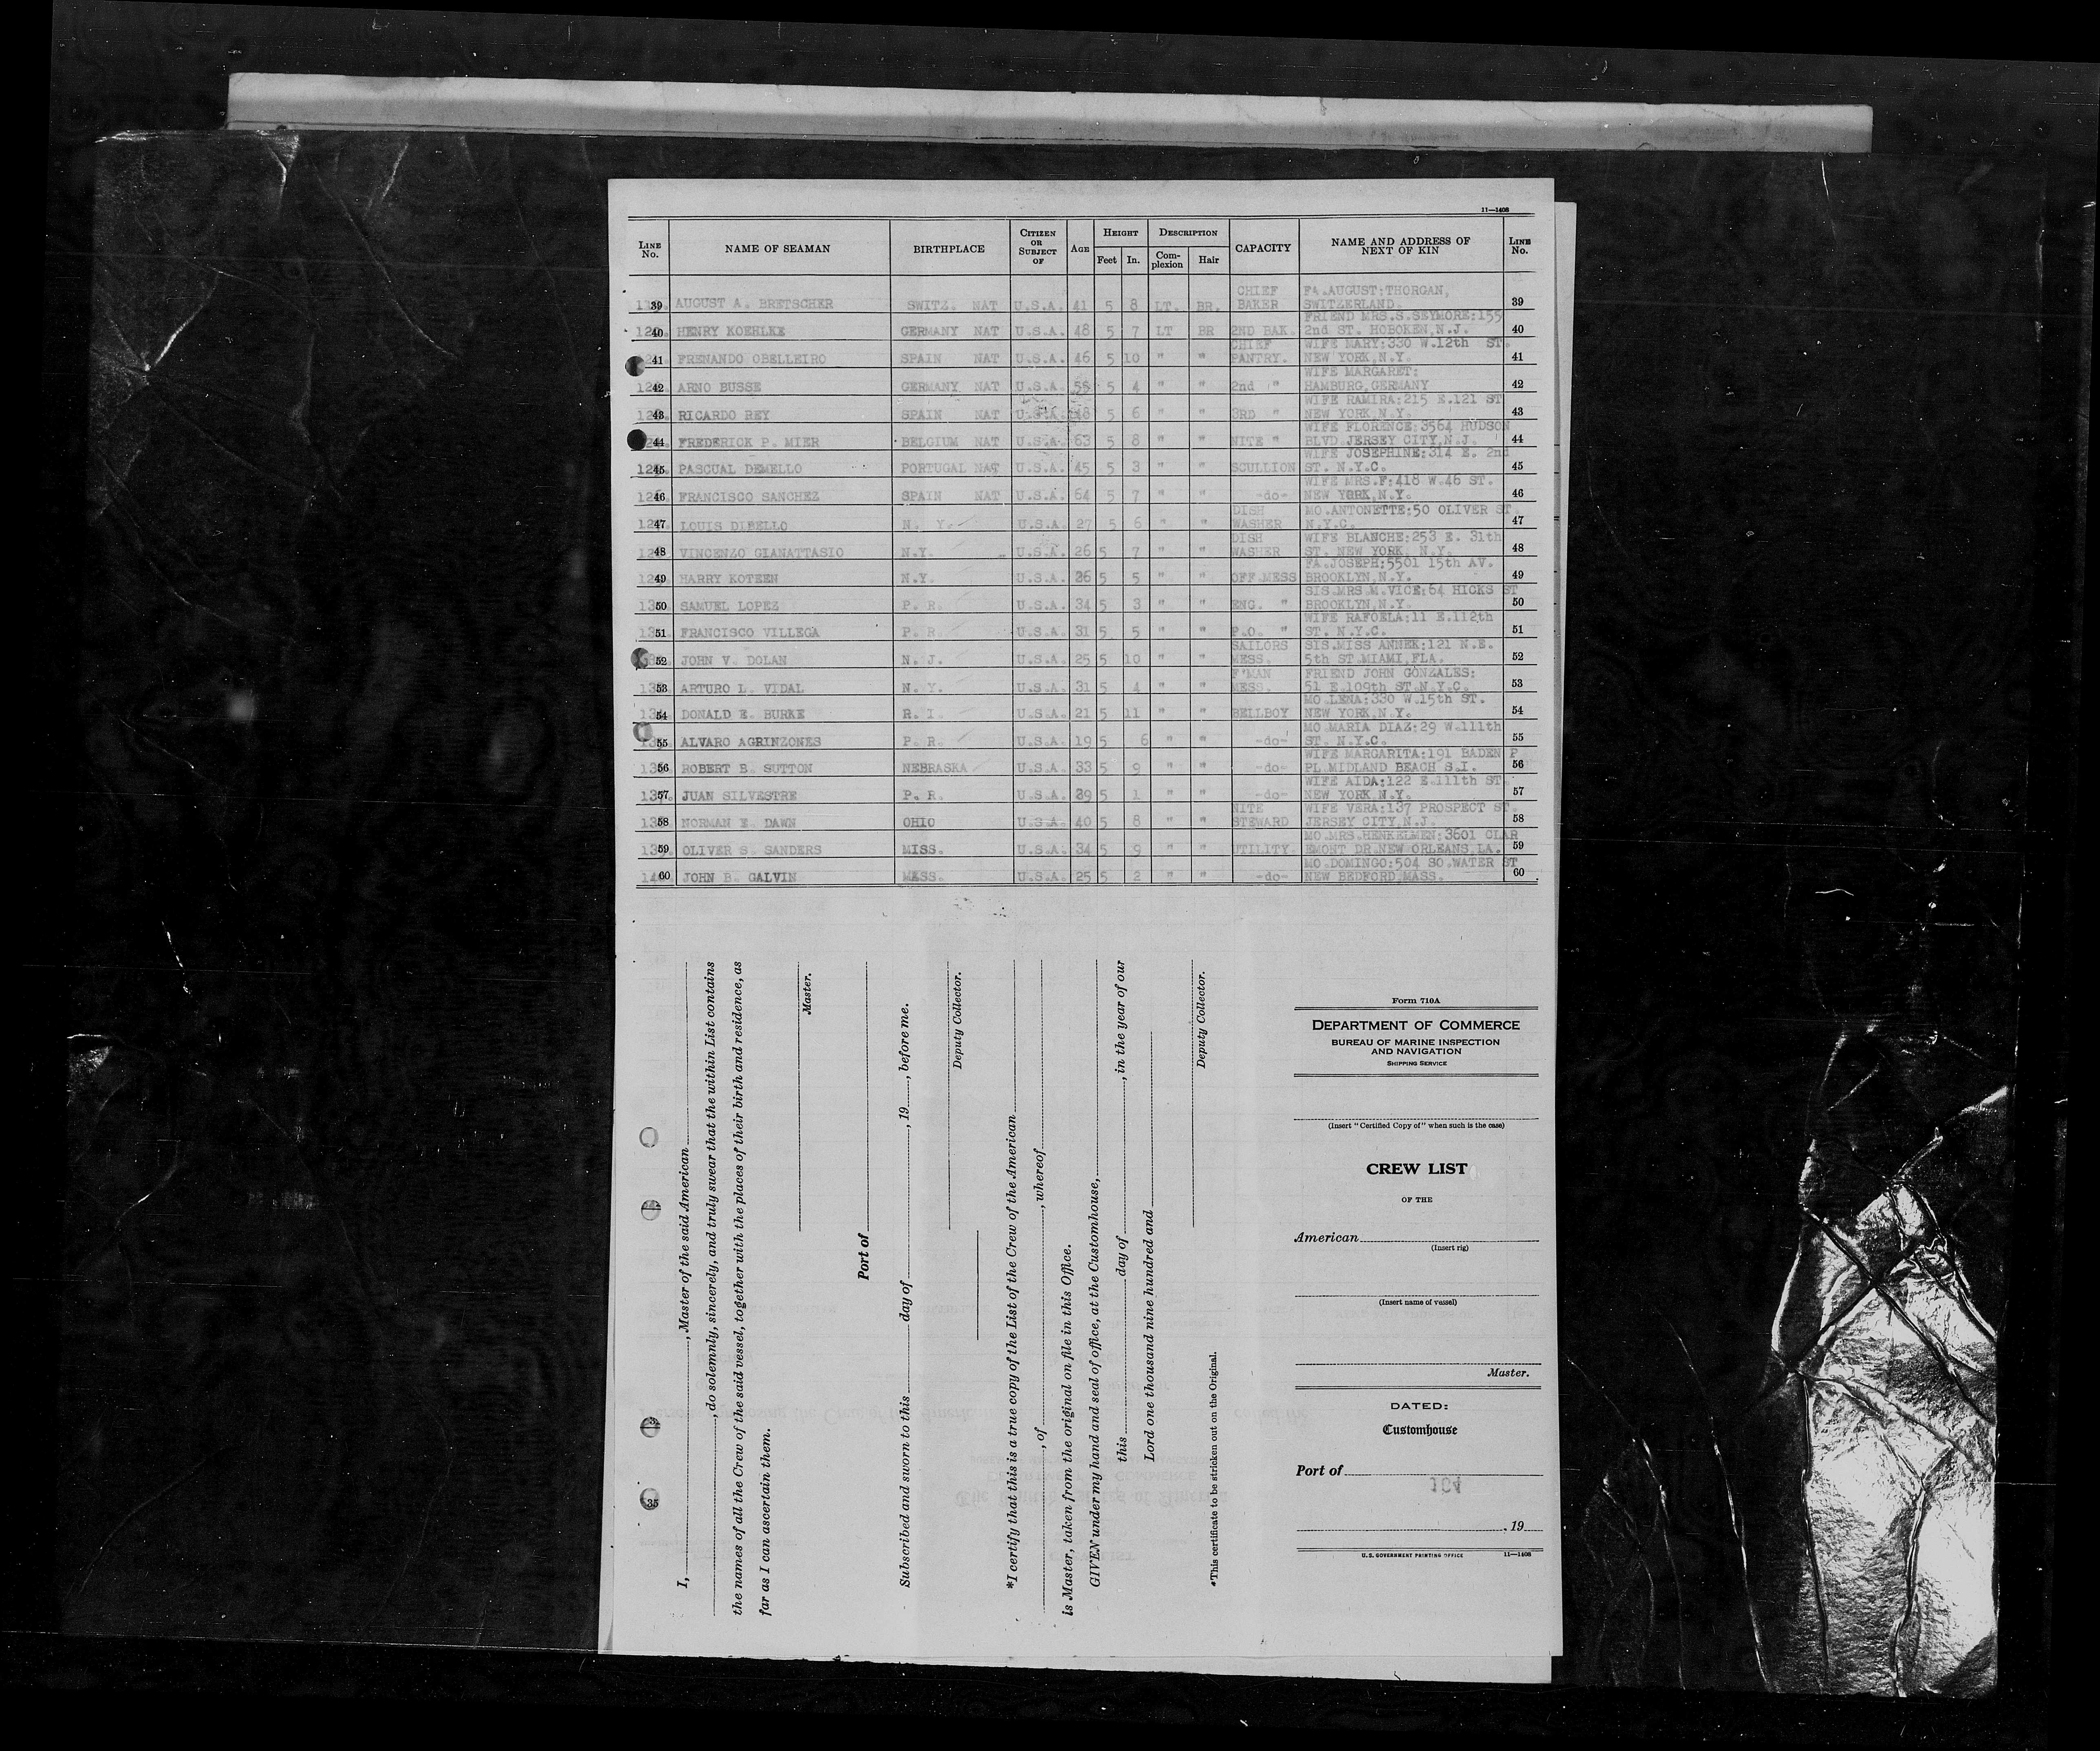 11—1408
LINE No. NAME OF SEAMAN BIRTHPLACE CITIZEN OR SUBJECT OF AGE HEIGHT Feet In. DESCRIPTION Complexion Hair CAPACITY NAME AND ADDRESS OF NEXT OF KIN LINE No.
39 AUGUST A. BRETSCHER SWITZ. NAT U.S.A. 41 5 8 LT. BR. CHIEF BAKER FA.AUGUST:THORGAN, SWITZERLAND. 39
40 HENRY KOEHLKE GERMANY NAT U.S.A. 48 5 7 LT BR 2ND BAK. FRIEND MRS.S.SEYMORE:155 2nd ST. HOBOKEN,N.J. 40
41 FRENANDO OBELLEIRO SPAIN NAT U.S.A. 46 5 10 " " CHIEF PANTRY. WIFE MARY:330 W.12th ST. NEW YORK,N.Y. 41
42 ARNO BUSSE GERMANY NAT U.S.A. 55 5 4 " " 2nd " WIFE MARGARET: HAMBURG,GERMANY 42
43 RICARDO REY SPAIN NAT U.S.A. 48 5 6 " " 3RD " WIFE RAMIRA:215 E.121 ST NEW YORK,N.Y. 43
44 FREDERICK P. MIER BELGIUM NAT U.S.A. 63 5 8 " " NITE " WIFE FLORENCE:3564 HUDSON BLVD JERSEY CITY,N.J. 44
45 PASCUAL DEMELLO PORTUGAL NAT U.S.A. 45 5 3 " " SCULLION WIFE JOSEPHINE:314 E. 2nd ST. N.Y.C. 45
46 FRANCISCO SANCHEZ SPAIN NAT U.S.A. 64 5 7 " " -do- WIFE MRS.F:418 W.46 ST. NEW YORK,N.Y. 46
47 LOUIS DIBELLO N. Y. U.S.A. 27 5 6 " " DISH WASHER MO.ANTONETTE:50 OLIVER ST. N.Y.C. 47
48 VINCENZO GIANATTASIO N.Y. U.S.A. 26 5 7 " " DISH WASHER WIFE BLANCHE:253 E. 31th ST. NEW YORK, N.Y. 48
49 HARRY KOTEEN N.Y. U.S.A. 26 5 5 " " OFF.MESS FA.JOSEPH:5501 15th AV. BROOKLYN,N.Y. 49
50 SAMUEL LOPEZ P. R. U.S.A. 34 5 3 " " ENG. " SIS.MRS M.VICE:64 HICKS ST BROOKLYN,N.Y. 50
51 FRANCISCO VILLEGA P. R. U.S.A. 31 5 5 " " P.O. " WIFE RAFOELA:11 E.112th ST. N.Y.C. 51
52 JOHN V. DOLAN N. J. U.S.A. 25 5 10 " " SAILORS MESS. SIS.MISS ANNEK:121 N.E. 5th ST.MIAMI,FLA. 52
53 ARTURO L. VIDAL N. Y. U.S.A. 31 5 4 " " F'MAN MESS. FRIEND JOHN GONZALES: 51 E.109th ST.N.Y.C. 53
54 DONALD E. BURKE R. I. U.S.A. 21 5 11 " " BELLBOY MO.LENA:330 W.15th ST. NEW YORK,N.Y. 54
55 ALVARO AGRINZONES P. R. U.S.A. 19 5 6 " " -do- MO MARIA DIAZ:29 W.111th ST. N.Y.C. 55
56 ROBERT B. SUTTON NEBRASKA U.S.A. 33 5 9 " " -do- WIFE MARGARITA:191 BADEN P PL.MIDLAND BEACH S.I. 56
57 JUAN SILVESTRE P. R. U.S.A. 29 5 1 " " -do- WIFE AIDA:122 E.111th ST. NEW YORK,N.Y. 57
58 NORMAN E. DAWN OHIO U.S.A. 40 5 8 " " NITE STEWARD WIFE VERA:137 PROSPECT ST. JERSEY CITY,N.J. 58
59 OLIVER S. SANDERS MISS. U.S.A. 34 5 9 " " UTILITY. MO.MRS.HENKELMEN:3601 CLAR EMONT DR.NEW ORLEANS,LA. 59
60 JOHN B. GALVIN MASS. U.S.A. 25 5 2 " " -do- MO.DOMINGO:504 SO.WATER ST NEW BEDFORD,MASS. 60
I, , Master of the said American
, do solemnly, sincerely, and truly swear that the within List contains
the names of all the Crew of the said vessel, together with the places of their birth and residence, as
far as I can ascertain them.
Master.
Port of
Subscribed and sworn to this day of , 19 , before me.
Deputy Collector.
*I certify that this is a true copy of the List of the Crew of the American
, of , whereof
is Master, taken from the original on file in this Office.
GIVEN under my hand and seal of office, at the Customhouse,
this day of , in the year of our
Lord one thousand nine hundred and
Deputy Collector.
*This certificate to be stricken out on the Original.
Form 710A
DEPARTMENT OF COMMERCE
BUREAU OF MARINE INSPECTION
AND NAVIGATION
SHIPPING SERVICE
(Insert "Certified Copy of" when such is the case)
CREW LIST
OF THE
American
(Insert rig)
(Insert name of vessel)
Master.
DATED:
Customhouse
Port of
, 19
U.S. GOVERNMENT PRINTING OFFICE 11—1408